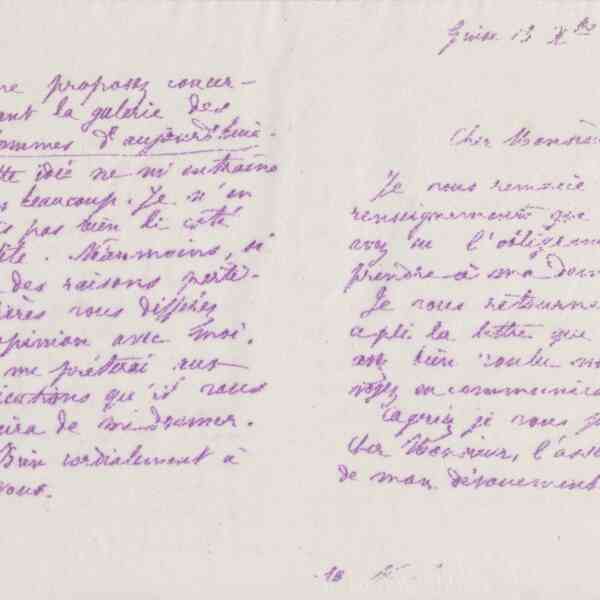 Guise 13 Xbre
me proposez concer-
ant la galerie des
ommes d'aujourd'hui.
tte idée ne m'entraine
s beaucoup. Je n'en
pas bien li côté
Néanmoins, si
des raisons
vous différez
opinion avec moi.
me prêterai aux
ications qu'il vous
ira de me donner.
Bien cordialement à
vous.
Cher Monsieur
Je vous remercie
renseignements que
avez eu l'obligeance
prendre à ma dem
Je vous retourne
a pli la lettre que
bien voulu
en communica
agréez je vous p
Cher Monsieur, l'ass
de mon dévouement
18